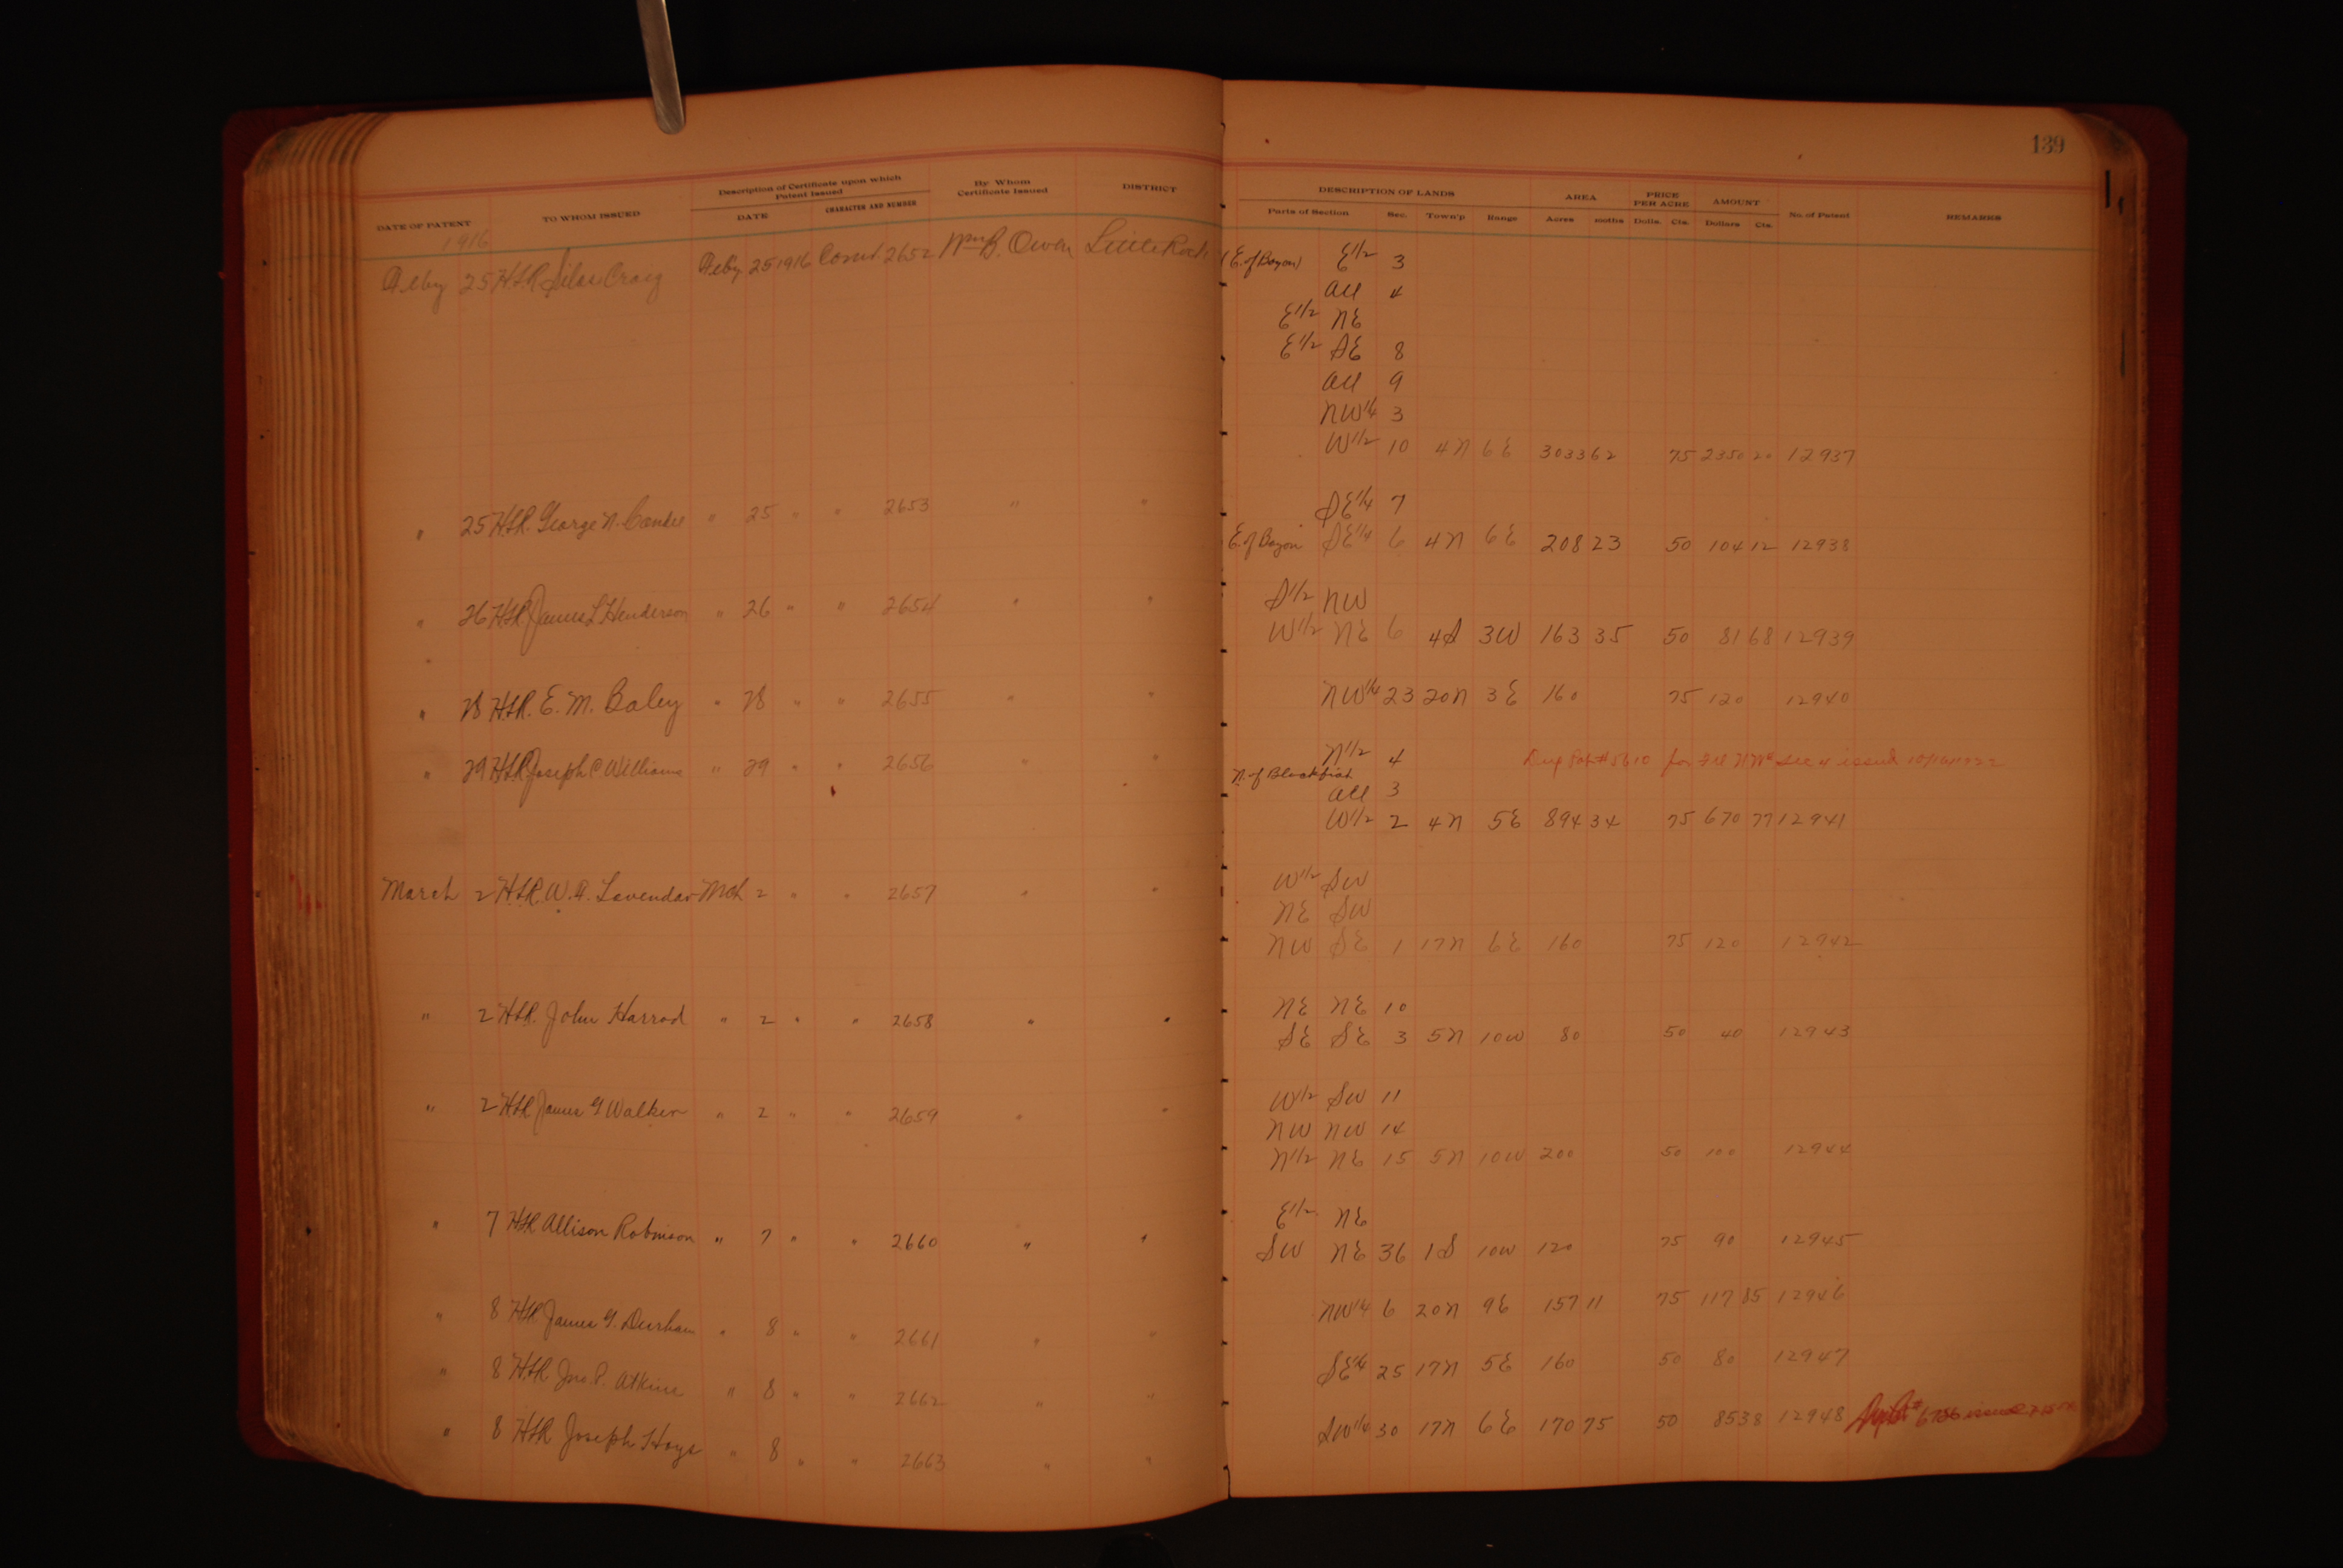 139
DATE OF PATENT TO WHOM ISSUED Description of Certificate upon which Patent Issued DATE CHARACTER AND NUMBER By Whom Certificate Issued DISTRICT DESCRIPTION OF LANDS Parts of Section Sec. Town'p Range AREA Acres moths PRICE PER ACRE Dolls. Cts. AMOUNT Dollars Cts. No. of Patent REMARKS
1916
Feby 25 HSR Silas Craig Feby 25 1916 Cond. 2652 Wm B. Owen Little Rock (E. of Bayou) E 1/2 3
All 4
E 1/2 NE
E 1/2 SE 8
All 9
NW 1/4 3
W 1/2 10 4N 6E 3033 62 75 2350 20 12937
" 25 HSR. George N. " 25 " " 2653 " " SE 1/4 7
E. of Bayou SE 1/4 6 4N 6E 208 23 50 104 12 12938
" 26 HSR James L Henderson " 26 " " 2654 " " S 1/2 NW
W 1/2 NE 6 4S 3W 163 35 50 81 68 12939
" 28 HSR. E. M. Baley " 28 " " 2655 " " NW 1/4 23 20N 3E 160 75 120 12940
" 29 HSR Joseph P Williams " 29 " " 2656 " " N 1/2 4 Dup Pat # 5610 for Frl NW4 Sec 4 issued 10/16/1922
N. of Blackfish
All 3
W 1/2 2 4N 5E 894 34 75 670 77 12941
March 2 HSR. W. A. Lavendar Mch 2 " " 2657 " " W 1/2 SW
NE SW
NW SE 1 17N 6E 160 75 120 12942
" 2 HSR. John Harrod " 2 " " 2658 " " NE NE 10
SE SE 3 5N 10W 80 50 40 12943
" 2 HSR James G Walker " 2 " " 2659 " " W 1/2 SW 11
NW NW 14
N 1/2 NE 15 5N 10W 200 50 100 12944
" 7 HSR Allison Robinson " 7 " " 2660 " " E 1/2 NE
SW NE 36 1S 10W 120 75 90 12945
" 8 HSR James G. Durham " 8 " " 2661 " " NW 1/4 6 20N 9E 157 11 75 117 85 12946
" 8 HSR Jno. P. Atkins " 8 " " 2662 " " SE 1/4 25 17N 5E 160 50 80 12947
" 8 HSR Joseph Hays " 8 " " 2663 " " SW 1/4 30 17N 6E 170 75 50 85 38 12948 # 6756 issued